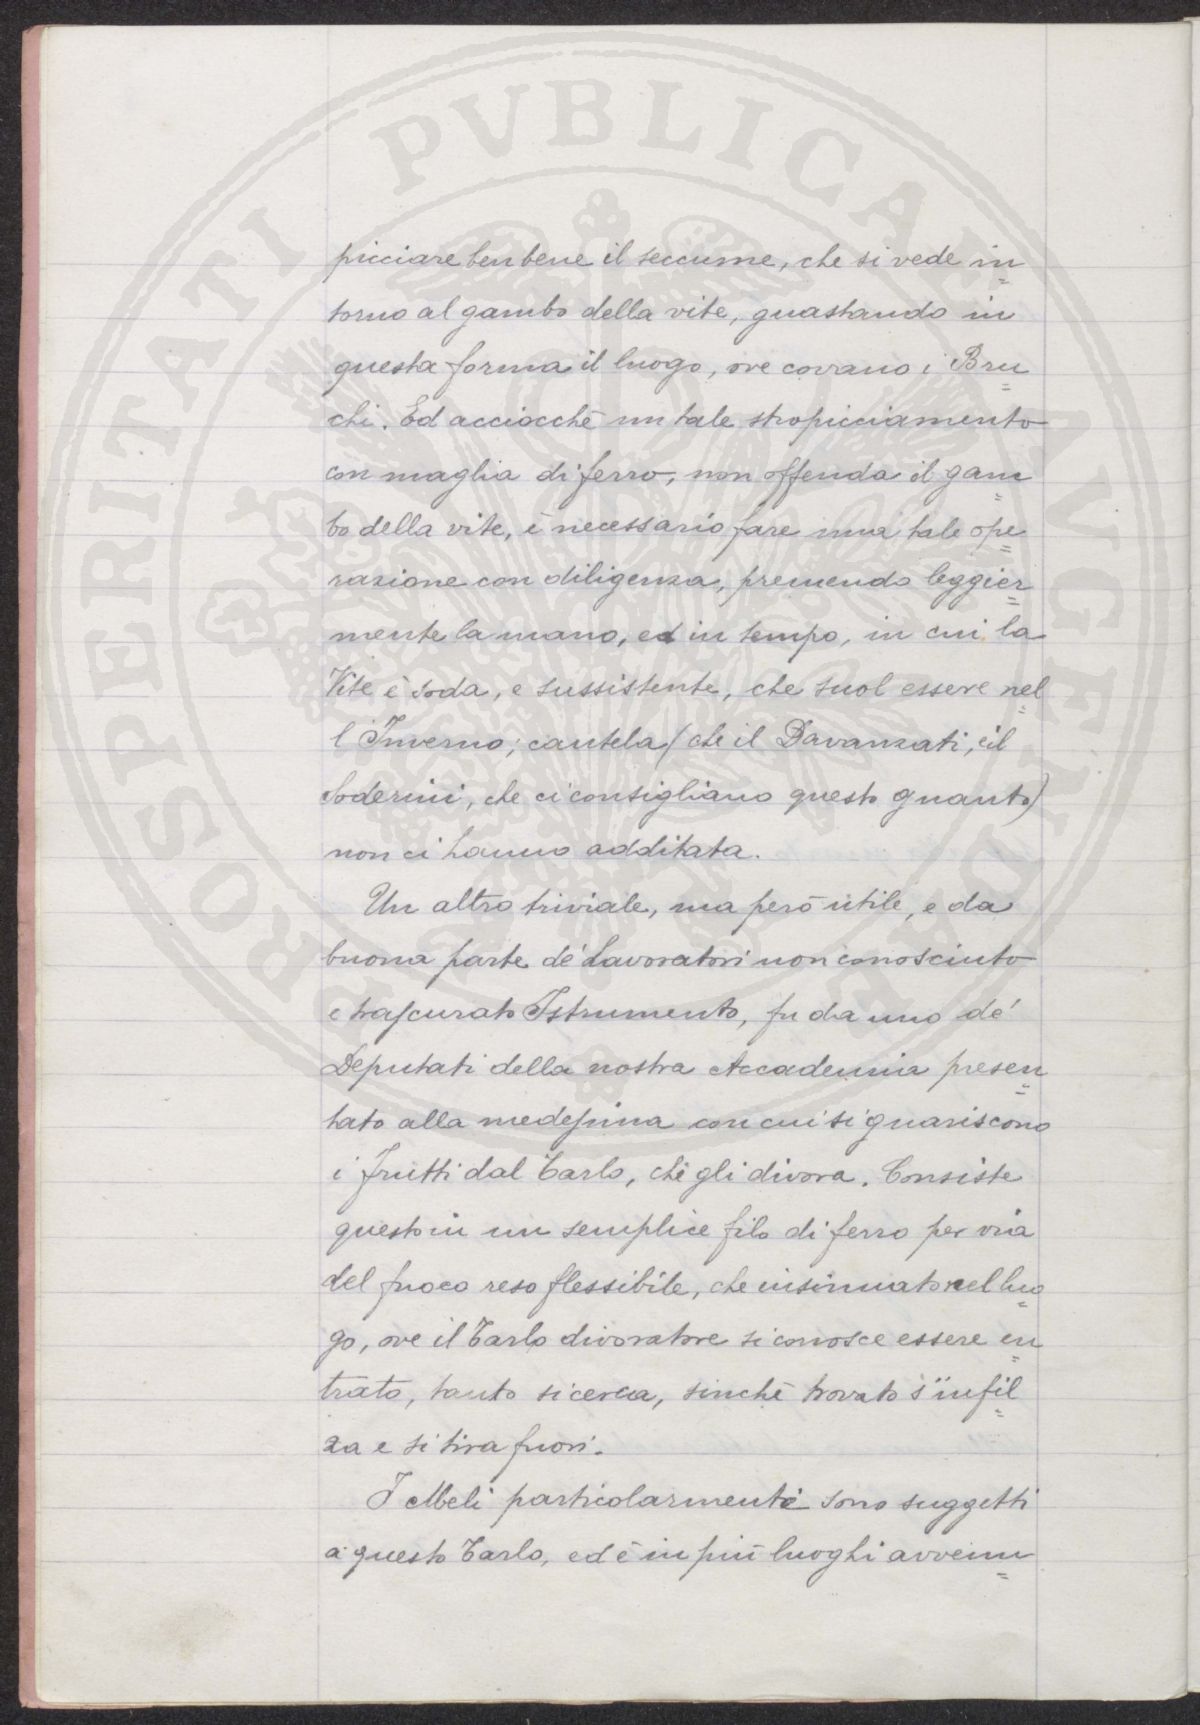 PROSPERITATI PVBLICAE AVGENDAE
picciare ben bene il seccume, che si vede in=
torno al gambo della vite, guastando in
questa forma il luogo, ove covano i Bru=
chi. Ed acciocchè un tale stropicciamento
con maglia di ferro, non offenda il gam=
bo della vite, è necessario fare una tale ope=
razione con diligenza, premendo leggier=
mente la mano, ed in tempo, in cui la
Vite è soda, e sussistente, che suol essere nel=
l'Inverno; cautela (che il Davanzati, e il
Soderini, che ci consigliano questo guanto)
non ci hanno additata.
Un altro triviale, ma però utile, e da
buona parte de' Lavoratori non conosciuto
e trascurato Istrumento, fu da uno de'
Deputati della nostra Accademia presen=
tato alla medesima con cui si guariscono
i frutti dal Tarlo, che gli divora. Consiste
questo in un semplice filo di ferro per via
del fuoco reso flessibile, che insinuato nel luo=
go, ove il Tarlo divoratore si conosce essere en=
trato, tanto si cerca, sinchè trovato s'infil=
za e si tira fuori.
I Meli particolarmente sono suggetti
a questo Tarlo, ed è in più luoghi avvenu=